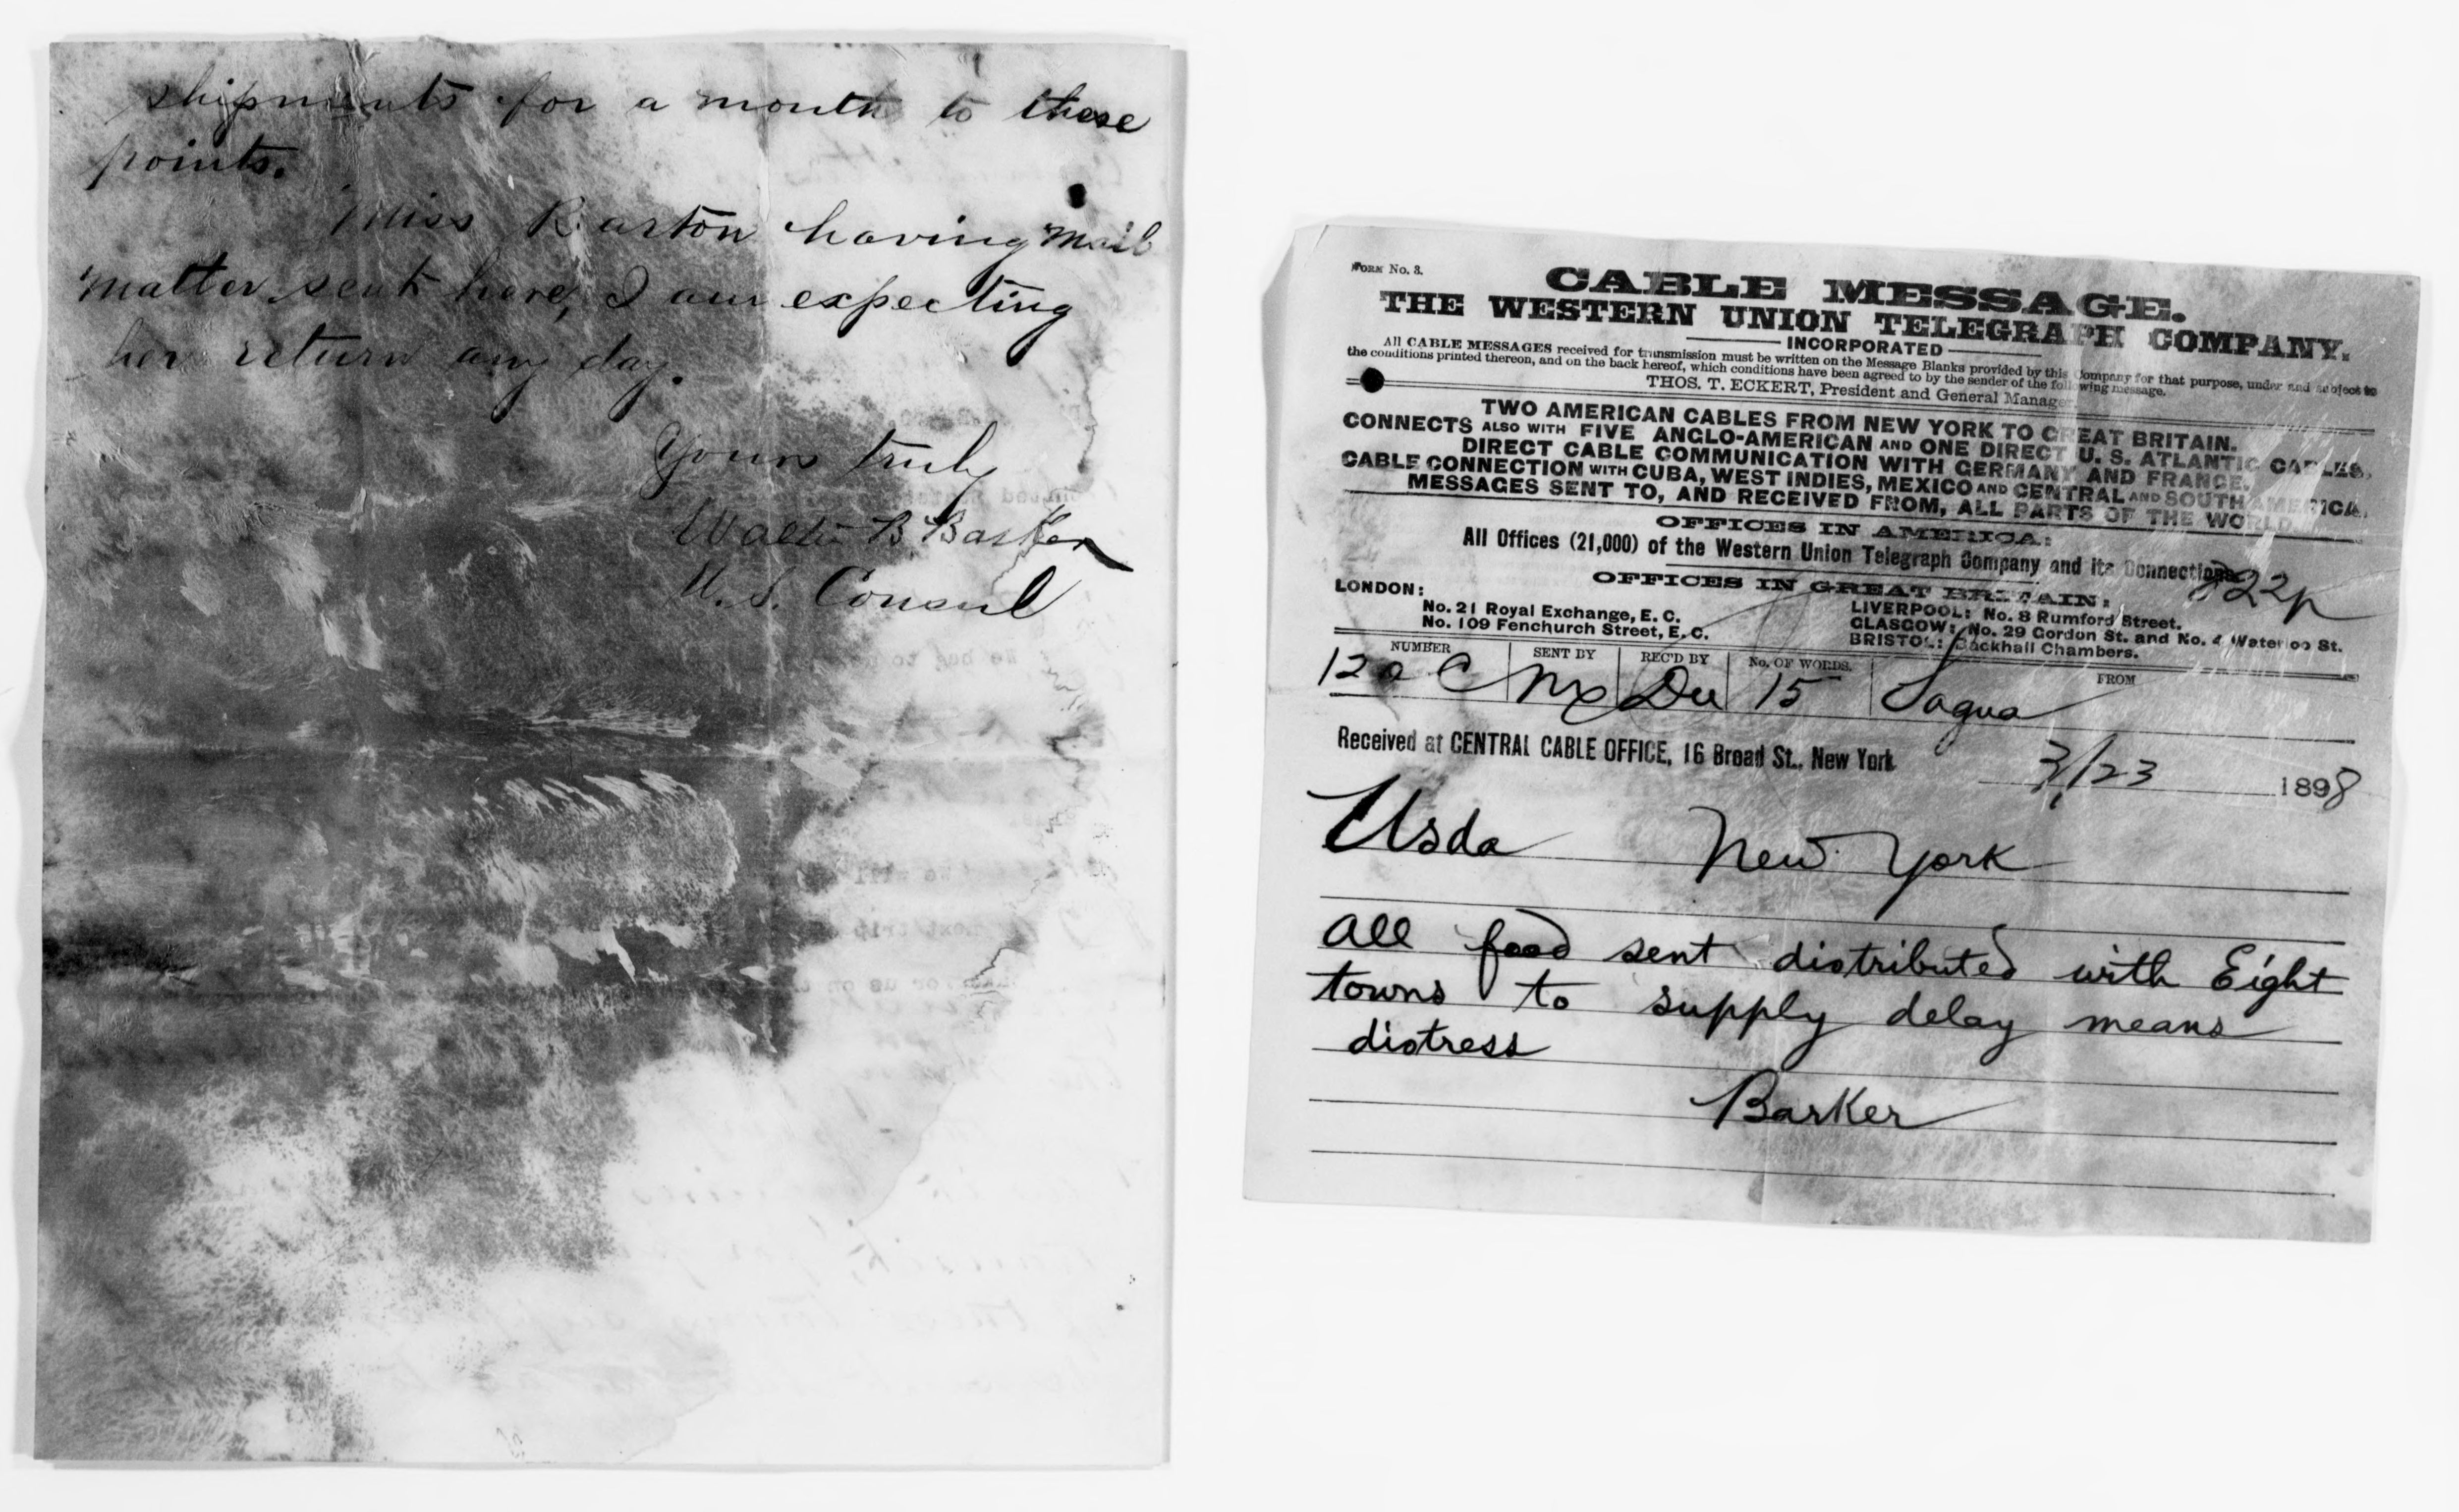 shipments for a month to these
points.
Miss Barton having mail
matter sent here, I am expecting
her return any day.
Yours truly
Walter B Barker
U.S. Consul
FORM No. 3.
CABLE MESSAGE.
THE WESTERN UNION TELEGRAPH COMPANY.
INCORPORATED
All CABLE MESSAGES received for transmission must be written on the Message Blanks provided by this Company for that purpose, under and subject to
the conditions printed thereon, and on the back hereof, which conditions have been agreed to by the sender of the following message.
THOS. T. ECKERT, President and General Manager.
TWO AMERICAN CABLES FROM NEW YORK TO GREAT BRITAIN.
CONNECTS ALSO WITH FIVE ANGLO-AMERICAN AND ONE DIRECT U. S. ATLANTIC CABLES.
DIRECT CABLE COMMUNICATION WITH GERMANY AND FRANCE.
CABLE CONNECTION WITH CUBA, WEST INDIES, MEXICO AND CENTRAL AND SOUTH AMERICA.
MESSAGES SENT TO, AND RECEIVED FROM, ALL PARTS OF THE WORLD.
OFFICES IN AMERICA:
All Offices (21,000) of the Western Union Telegraph Company and its Connections
OFFICES IN GREAT BRITAIN:
822p
LONDON:
No. 21 Royal Exchange, E. C.
No. 109 Fenchurch Street, E. C.
LIVERPOOL: No. 8 Rumford Street.
GLASGOW: No. 29 Gordon St. and No. 4 Waterloo St.
BRISTOL: Backhall Chambers.
NUMBER SENT BY REC'D BY No. OF WORDS. FROM
C Du 15 Sagua
Received at CENTRAL CABLE OFFICE, 16 Broad St., New York
3/23 1898
Usda New York
all food sent distributed with Eight
towns to supply delay means
distress
Barker